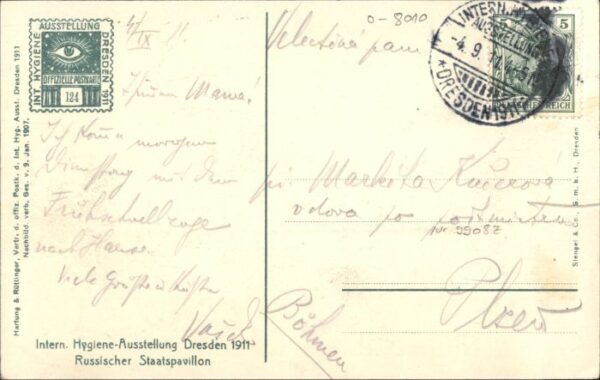 AUSSTELLUNG
INT. HYGIENE
DRESDEN 1911
OFFIZIELLE POSTKARTE
124
Hartung & Rüttinger, Vertr. d. offiz. Postk. d. Int. Hyg. Ausst. Dresden 1911
Nachbild. verb. Ges. v. 9. Jan. 1907.
4/IX 11.
Mama!
Ich komme morgen
Dienstag mit dem
Frühschnellzuge
nach Hause.
Viele Grüsse u. Küsse
Vašek
Intern. Hygiene-Ausstellung Dresden 1911
Russischer Staatspavillon
0-8010
Velectěná paní
INTERN. HYGIENE
AUSSTELLUNG
-4.9.11.
*DRESDEN 1911*
5
DEUTSCHES REICH
pí. Marketa Kučerová
vdova po
99087
Plzeň
Böhmen
Stengel & Co., G. m. b. H., Dresden